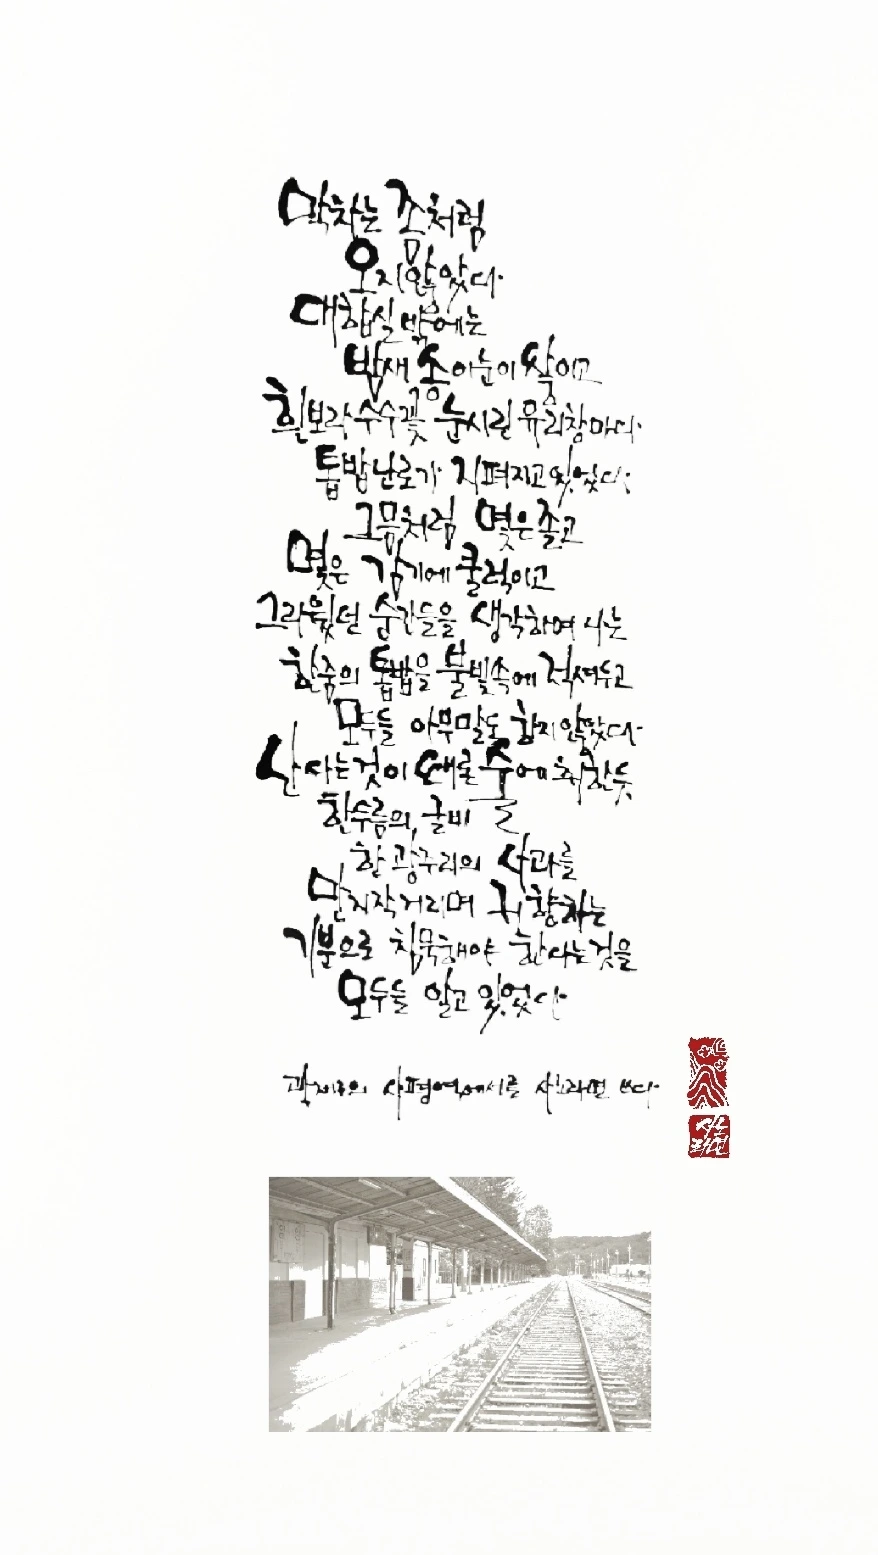 막차는 좀처럼
오지 않았다
대합실 밖에는
밤새 송이눈이 쌓이고
흰보라 수수꽃 눈시린 유리창마다
톱밥난로가 지펴지고 있었다
그믐처럼 몇은 졸고
몇은 감기에 쿨럭이고
그리웠던 순간들을 생각하며 나는
한줌의 톱밥을 불빛속에 던져주고
모두들 아무말도 하지 않았다
산다는것이 때론 술에 취한듯
한두름의 굴비
한 광주리의 사과를
만지작거리며 귀향하는
기분으로 침묵해야 한다는것을
모두들 알고 있었다
곽재구의 사평역에서를 산그라면 쓰다